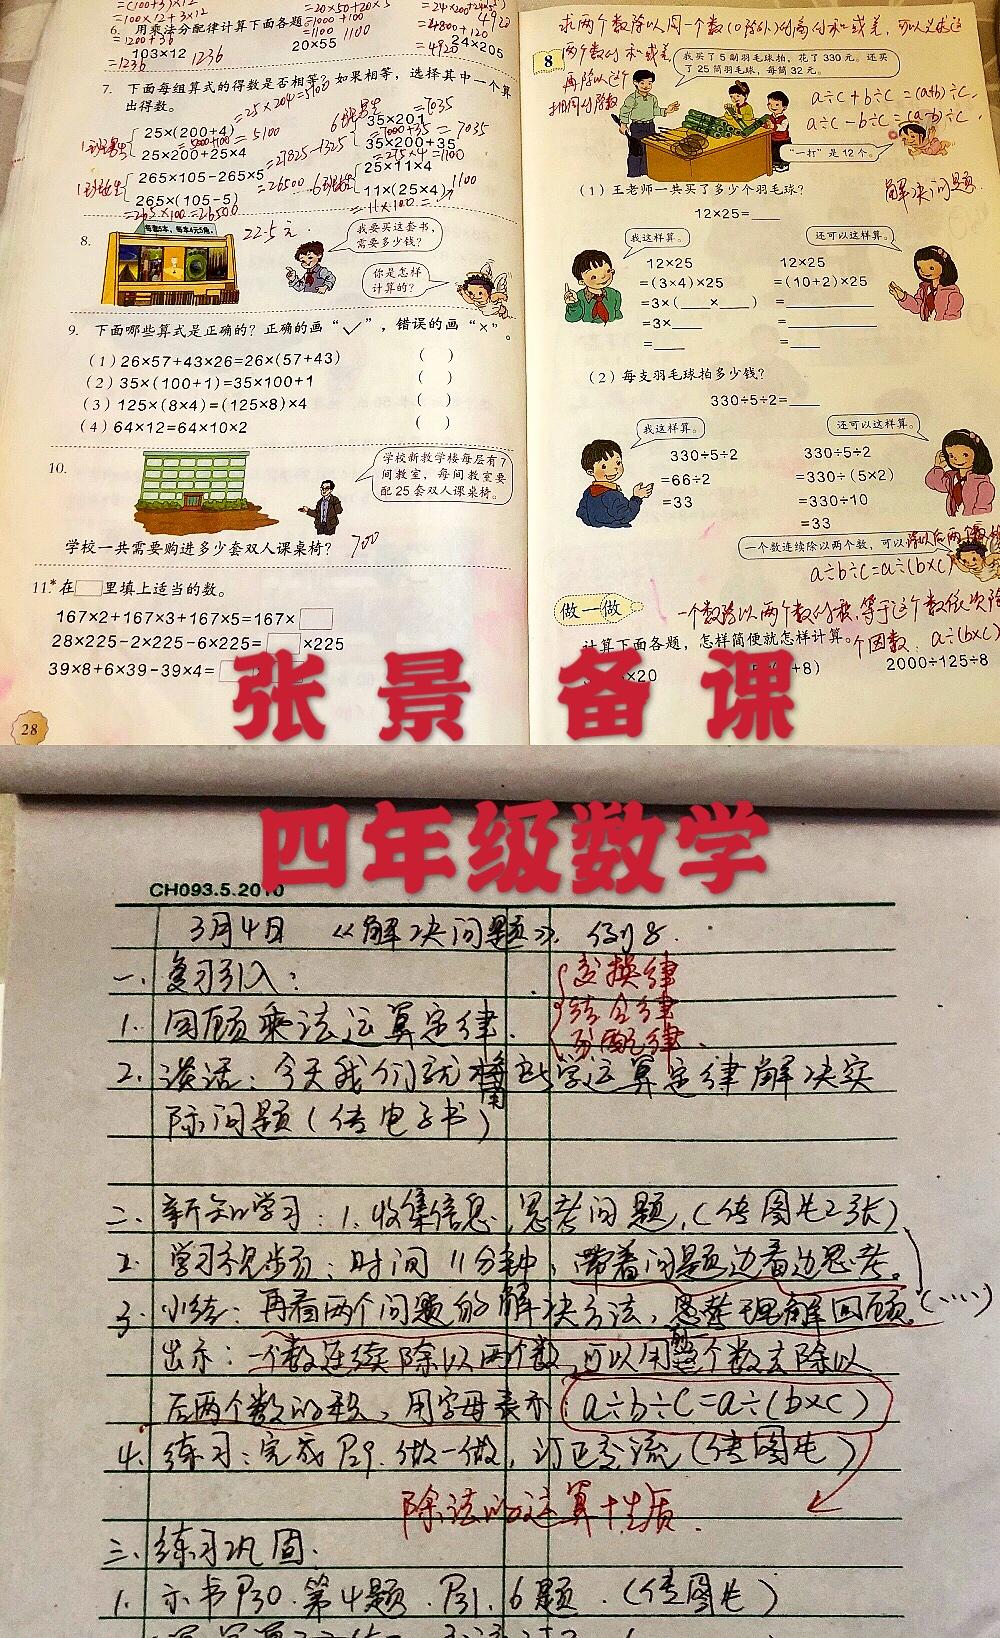 =100×12+3×12
=1000+100
6. 用乘法分配律计算下面各题。
=1200+36
=1100 1100
=4800+120
=1236
103×12 1236
20×55
=4920 24×205
7. 下面每组算式的得数是否相等？如果相等，选择其中一个算
出得数。
25×(200+4)
=5000+100=5100
25×200+25×4
35×201
=7035
=7000+35=7035
35×200+35
265×105-265×5
=27825-1325
=26500
265×(105-5)
=265×100=26500
25×11×4
=275×4=1100
11×(25×4) 1100
=11×100=
8.
每套5本，每本4元5角。
22.5元
我要买这套书，
需要多少钱？
你是怎样
计算的？
9. 下面哪些算式是正确的？正确的画“✓”，错误的画“×”。
(1) 26×57+43×26=26×(57+43) ( )
(2) 35×(100+1)=35×100+1 ( )
(3) 125×(8×4)=(125×8)×4 ( )
(4) 64×12=64×10×2 ( )
10.
学校新教学楼每层有7
间教室，每间教室要
配25套双人课桌椅。
学校一共需要购进多少套双人课桌椅？ 700
11.* 在□里填上适当的数。
167×2+167×3+167×5=167×□
28×225-2×225-6×225=□×225
39×8+6×39-39×4=□
28
求两个数除以同一个数(0除外)的商的和或差，可以
两个数的和或差
再除以这个
相同的除数
8
我买了5副羽毛球拍，花了330元。还买
了25筒羽毛球，每筒32元。
a÷c+b÷c=(a+b)÷c.
a÷c-b÷c=(a-b)÷c.
“一打”是12个。
解决问题
(1) 王老师一共买了多少个羽毛球？
12×25=___
我这样算。
还可以这样算。
12×25
=(3×4)×25
=3×(___×___)
=3×___
=___
12×25
=(10+2)×25
=___
=___
(2) 每支羽毛球拍多少钱？
330÷5÷2=___
我这样算。
还可以这样算。
330÷5÷2
=66÷2
=33
330÷5÷2
=330÷(5×2)
=330÷10
=33
一个数连续除以两个数，可以除以后两个数
a÷b÷c=a÷(b×c)
做一做
一个数除以两个数的积，等于这个数依次除
计算下面各题，怎样简便就怎样计算。
个因数. a÷(b×c)
×20
+8)
2000÷125÷8
张景 备课
四年级数学
CH093.5.2010
3月4日 《解决问题》. 例8.
一. 复习引入：
交换律
结合律
分配律.
1. 回顾乘法运算定律.
2. 谈话：今天我们就将用学运算定律解决实
际问题(传电子书)
二. 新知学习：1. 收集信息，思考问题，(传图片2张)
2. 学习不见步页：时间11分钟，带着问题边看边思考。
3. 小结：再看两个问题的解决方法，思考理解回顾。(....)
出示：一个数连续除以两个数，可以用这个数去除以
后两个数的积，用字母表示：a÷b÷c=a÷(b×c)
4. 练习：完成P29.做一做，订正交流(传图片)
除法的运算性质.
三. 练习巩固.
1. 示书P30.第4题.P31.6题.(传图片)